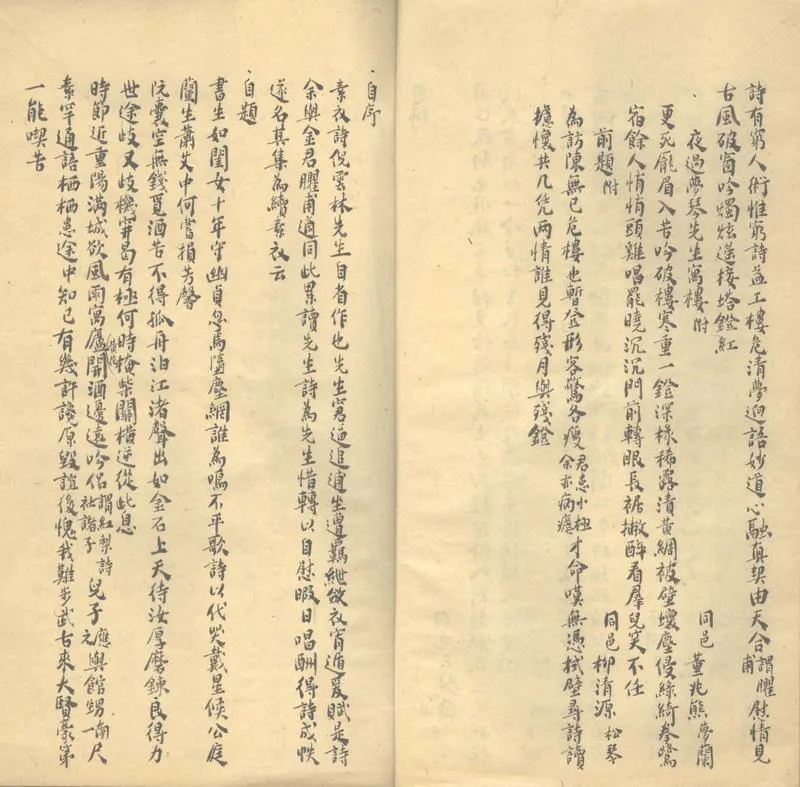 詩有窮人術惟窮詩益工樓危清夢迥語妙道心融真契由天合謂耀甫慰情見
古風破窗吟燭炫遥接塔鐙紅
夜過夢琴先生寓樓附　同邑董兆熊夢蘭
更死龐眉入苦吟破樓寒重一鐙深椽稀露漬黃綢被壁壞塵侵綠綺琴驚
宿餘人悄悄頭雞唱罷曉沉沉門前轉眼長裾撇醉看羣兒笑不任
前題附　同邑柳清源松琴
為訪陳無已危樓也暫登形容驚各瘦君患小極余亦病瘧才命嘆無憑拭壁尋詩讀
攄懷共几凭兩情誰見得殘月與殘鐙
自序
素衣詩倪雲林先生自省作也先生窘逼追逋坐遭羈紲欲衣宵遁爰賦是詩
余與金君耀甫適同此累讀先生詩為先生惜轉以自慰暇日唱酬得詩成帙
遂名其集為續素衣云
自題
書生如閨女十年守幽貞忽焉墮塵網誰為鳴不平歌詩以代哭戴星候公庭
蘭生蕭艾中何嘗損芳馨
阮囊空無錢覓酒苦不得孤舟泊江渚聲出如金石上天待汝厚磨鍊良得力
世途歧又歧機穽曷有極何時掩柴關橫逆從此息
時節近重陽滿城欲風雨寓廬開酒邊遠吟侶謂紅梨詩社諸子兒子應元與館甥一南尺
素罕通語栖栖患途中知已有幾許讒原毀誼後愧我難步武古來大賢豪第
一能喫苦